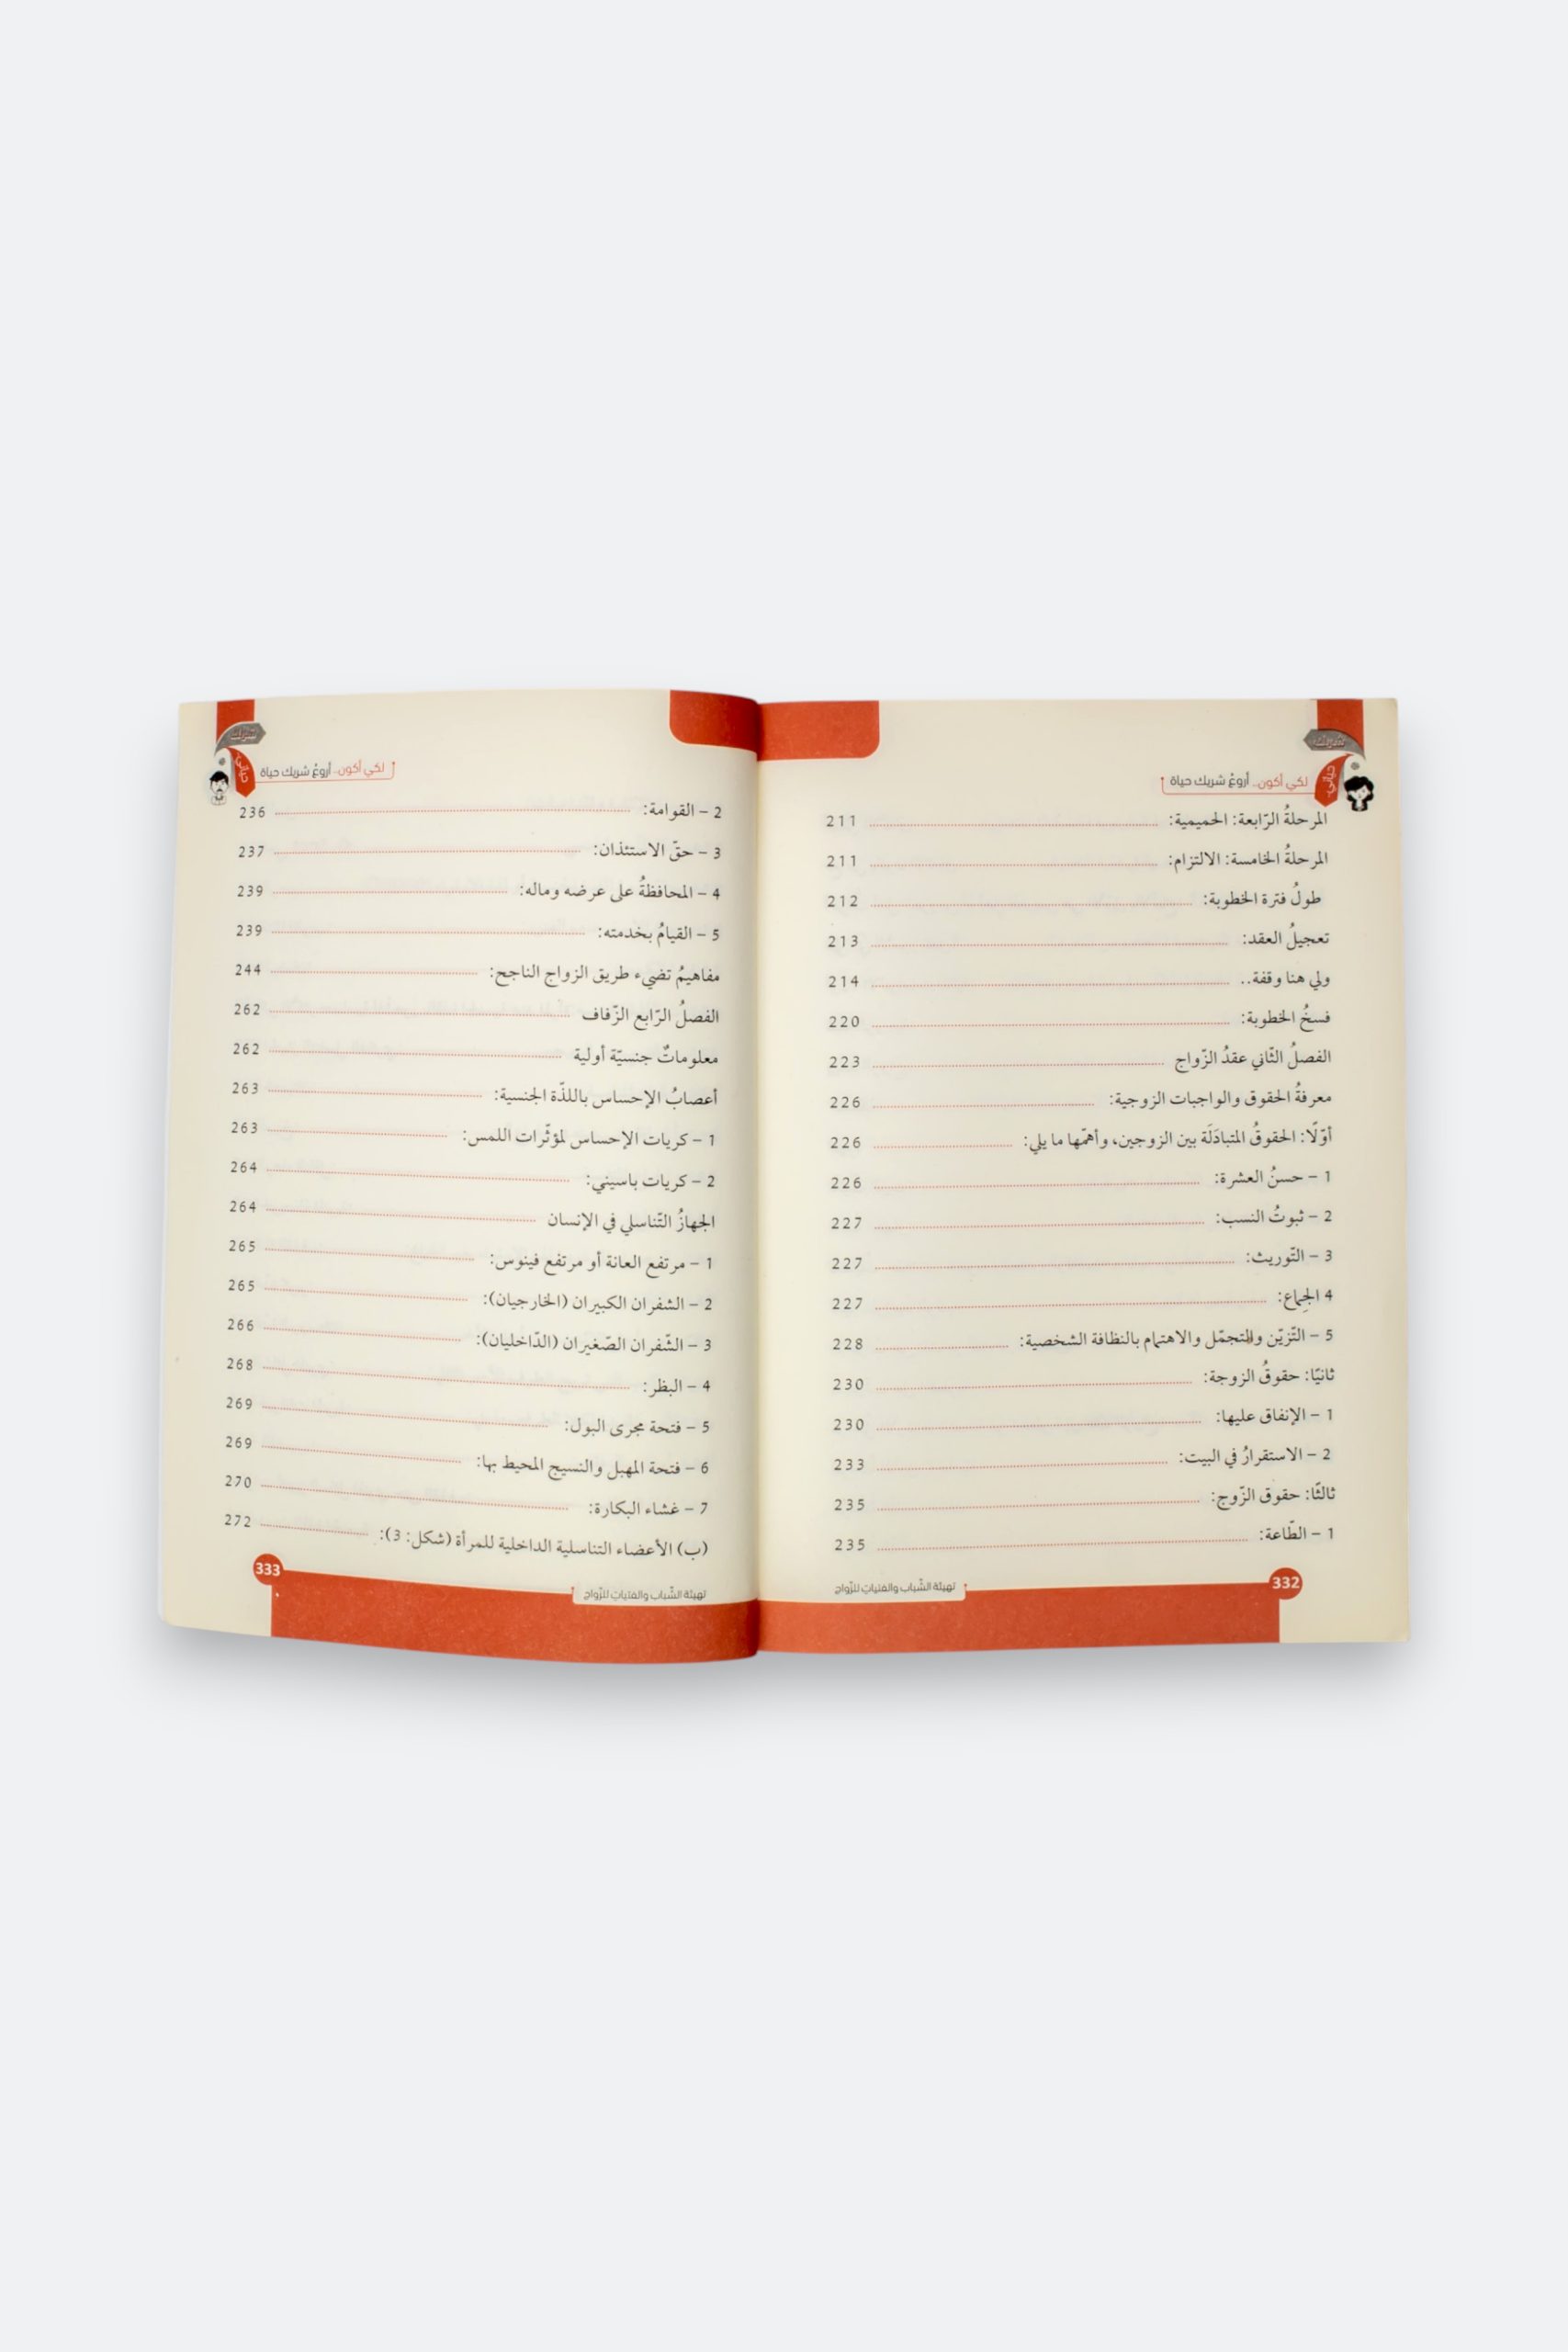 شريك
حياتي
لكي أكون.. أروعُ شريك حياة
المرحلةُ الرّابعة: الحميمية: 211
المرحلةُ الخامسة: الالتزام: 211
طولُ فترة الخطوبة: 212
تعجيلُ العقد: 213
ولي هنا وقفة.. 214
فسخُ الخطوبة: 220
الفصلُ الثّاني عقدُ الزّواج 223
معرفةُ الحقوق والواجبات الزوجية: 226
أوّلًا: الحقوقُ المتبادَلَة بين الزوجين، وأهمّها ما يلي: 226
1 – حسنُ العشرة: 226
2 – ثبوتُ النسب: 227
3 – التّوريث: 227
4 الجِماع: 227
5 – التّزيّن والتجمّل والاهتمام بالنظافة الشخصية: 228
ثانيًا: حقوقُ الزوجة: 230
1 – الإنفاق عليها: 230
2 – الاستقرارُ في البيت: 233
ثالثًا: حقوق الزّوج: 235
1 – الطّاعة: 235
332
تهيئة الشّباب والفتيات للزّواج
شريك
حياتي
لكي أكون.. أروعُ شريك حياة
2 – القوامة: 236
3 – حقّ الاستئذان: 237
4 – المحافظةُ على عرضه وماله: 239
5 – القيامُ بخدمته: 239
مفاهيمُ تضيء طريق الزواج الناجح: 244
الفصلُ الرّابع الزّفاف 262
معلوماتٌ جنسيّة أولية 262
أعصابُ الإحساس باللذّة الجنسية: 263
1 – كريات الإحساس لمؤثّرات اللمس: 263
2 – كريات باسيني: 264
الجهازُ التّناسلي في الإنسان 264
1 – مرتفع العانة أو مرتفع فينوس: 265
2 – الشفران الكبيران (الخارجيان): 265
3 – الشّفران الصّغيران (الدّاخليان): 266
4 – البظر: 268
5 – فتحة مجرى البول: 269
6 – فتحة المهبل والنسيج المحيط بها: 269
7 – غشاء البكارة: 270
(ب) الأعضاء التناسلية الداخلية للمرأة (شكل: 3): 272
333
تهيئة الشّباب والفتيات للزّواج